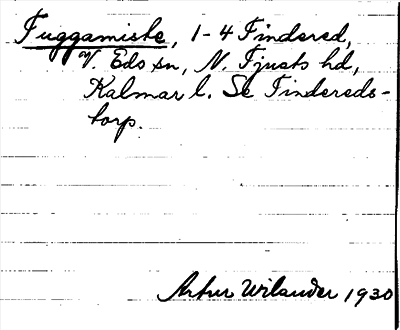 Fuggamiske, 1-4 Findered,
V. Eds sn, N. Tjusts hd,
Kalmar l. Se Findereds-
torp.
Artur Wilander 1930